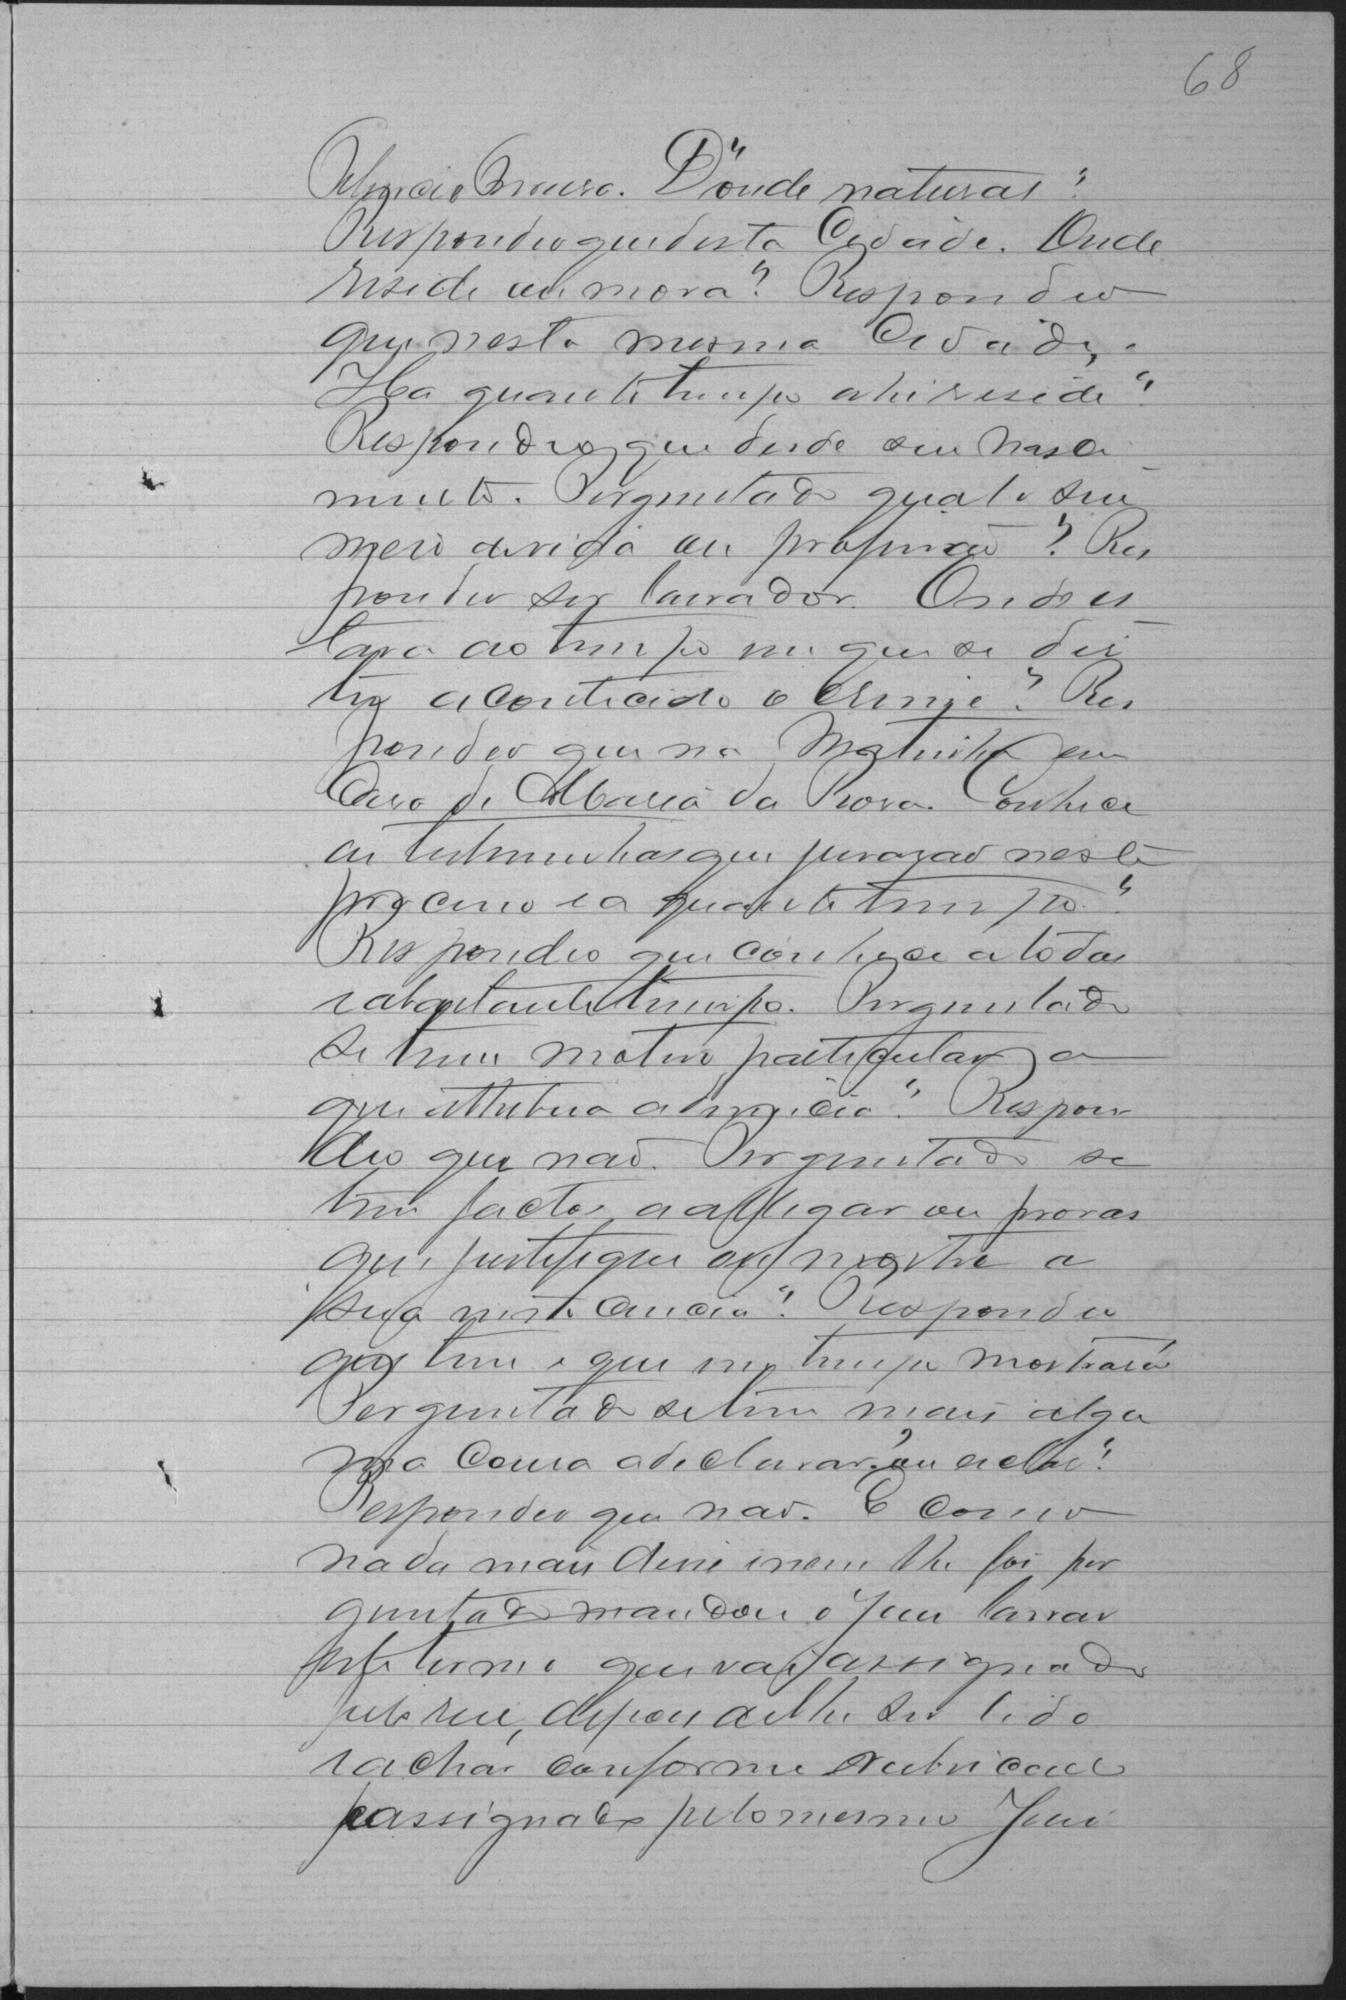 68
D'onde natural?
Respondeo que desta Cidade. Onde
reside ou mora? Respondeo
que nesta mesma Cidade.
Ha quanto tempo ahi reside?
Respondeo que desde seu nasci
mento. Perguntado qual o seu
meio de vida ou profissão? Res
pondeo ser lavrador. Onde es
tava ao tempo em que se diz
ter acontecido o crime? Res
pondeo que na Matinha em
Casa de Maria da Rosa. Conhece
as testemunhas que jurarão neste
processo e a quanto tempo?
Respondeo que conhece a todas
e a bastante tempo. Perguntado
se tem motivo particular a
que attribua a denuncia? Respon
deo que não. Perguntado se
tem factos a allegar ou provas
que justifique ou mostre a
sua innocencia? Respondeo
que tem e que em tempo mostrará
Perguntado se tem mais algu
ma cousa a declarar, ou
Respondeo que não. E como
nada mais disse e nem lhe foi per
guntado mandou o Juiz lavrar
este termo que vai assignado
pelo reu, depois de lhe ser lido
e achar conforme rubricado
e assignado pelo mesmo Juiz